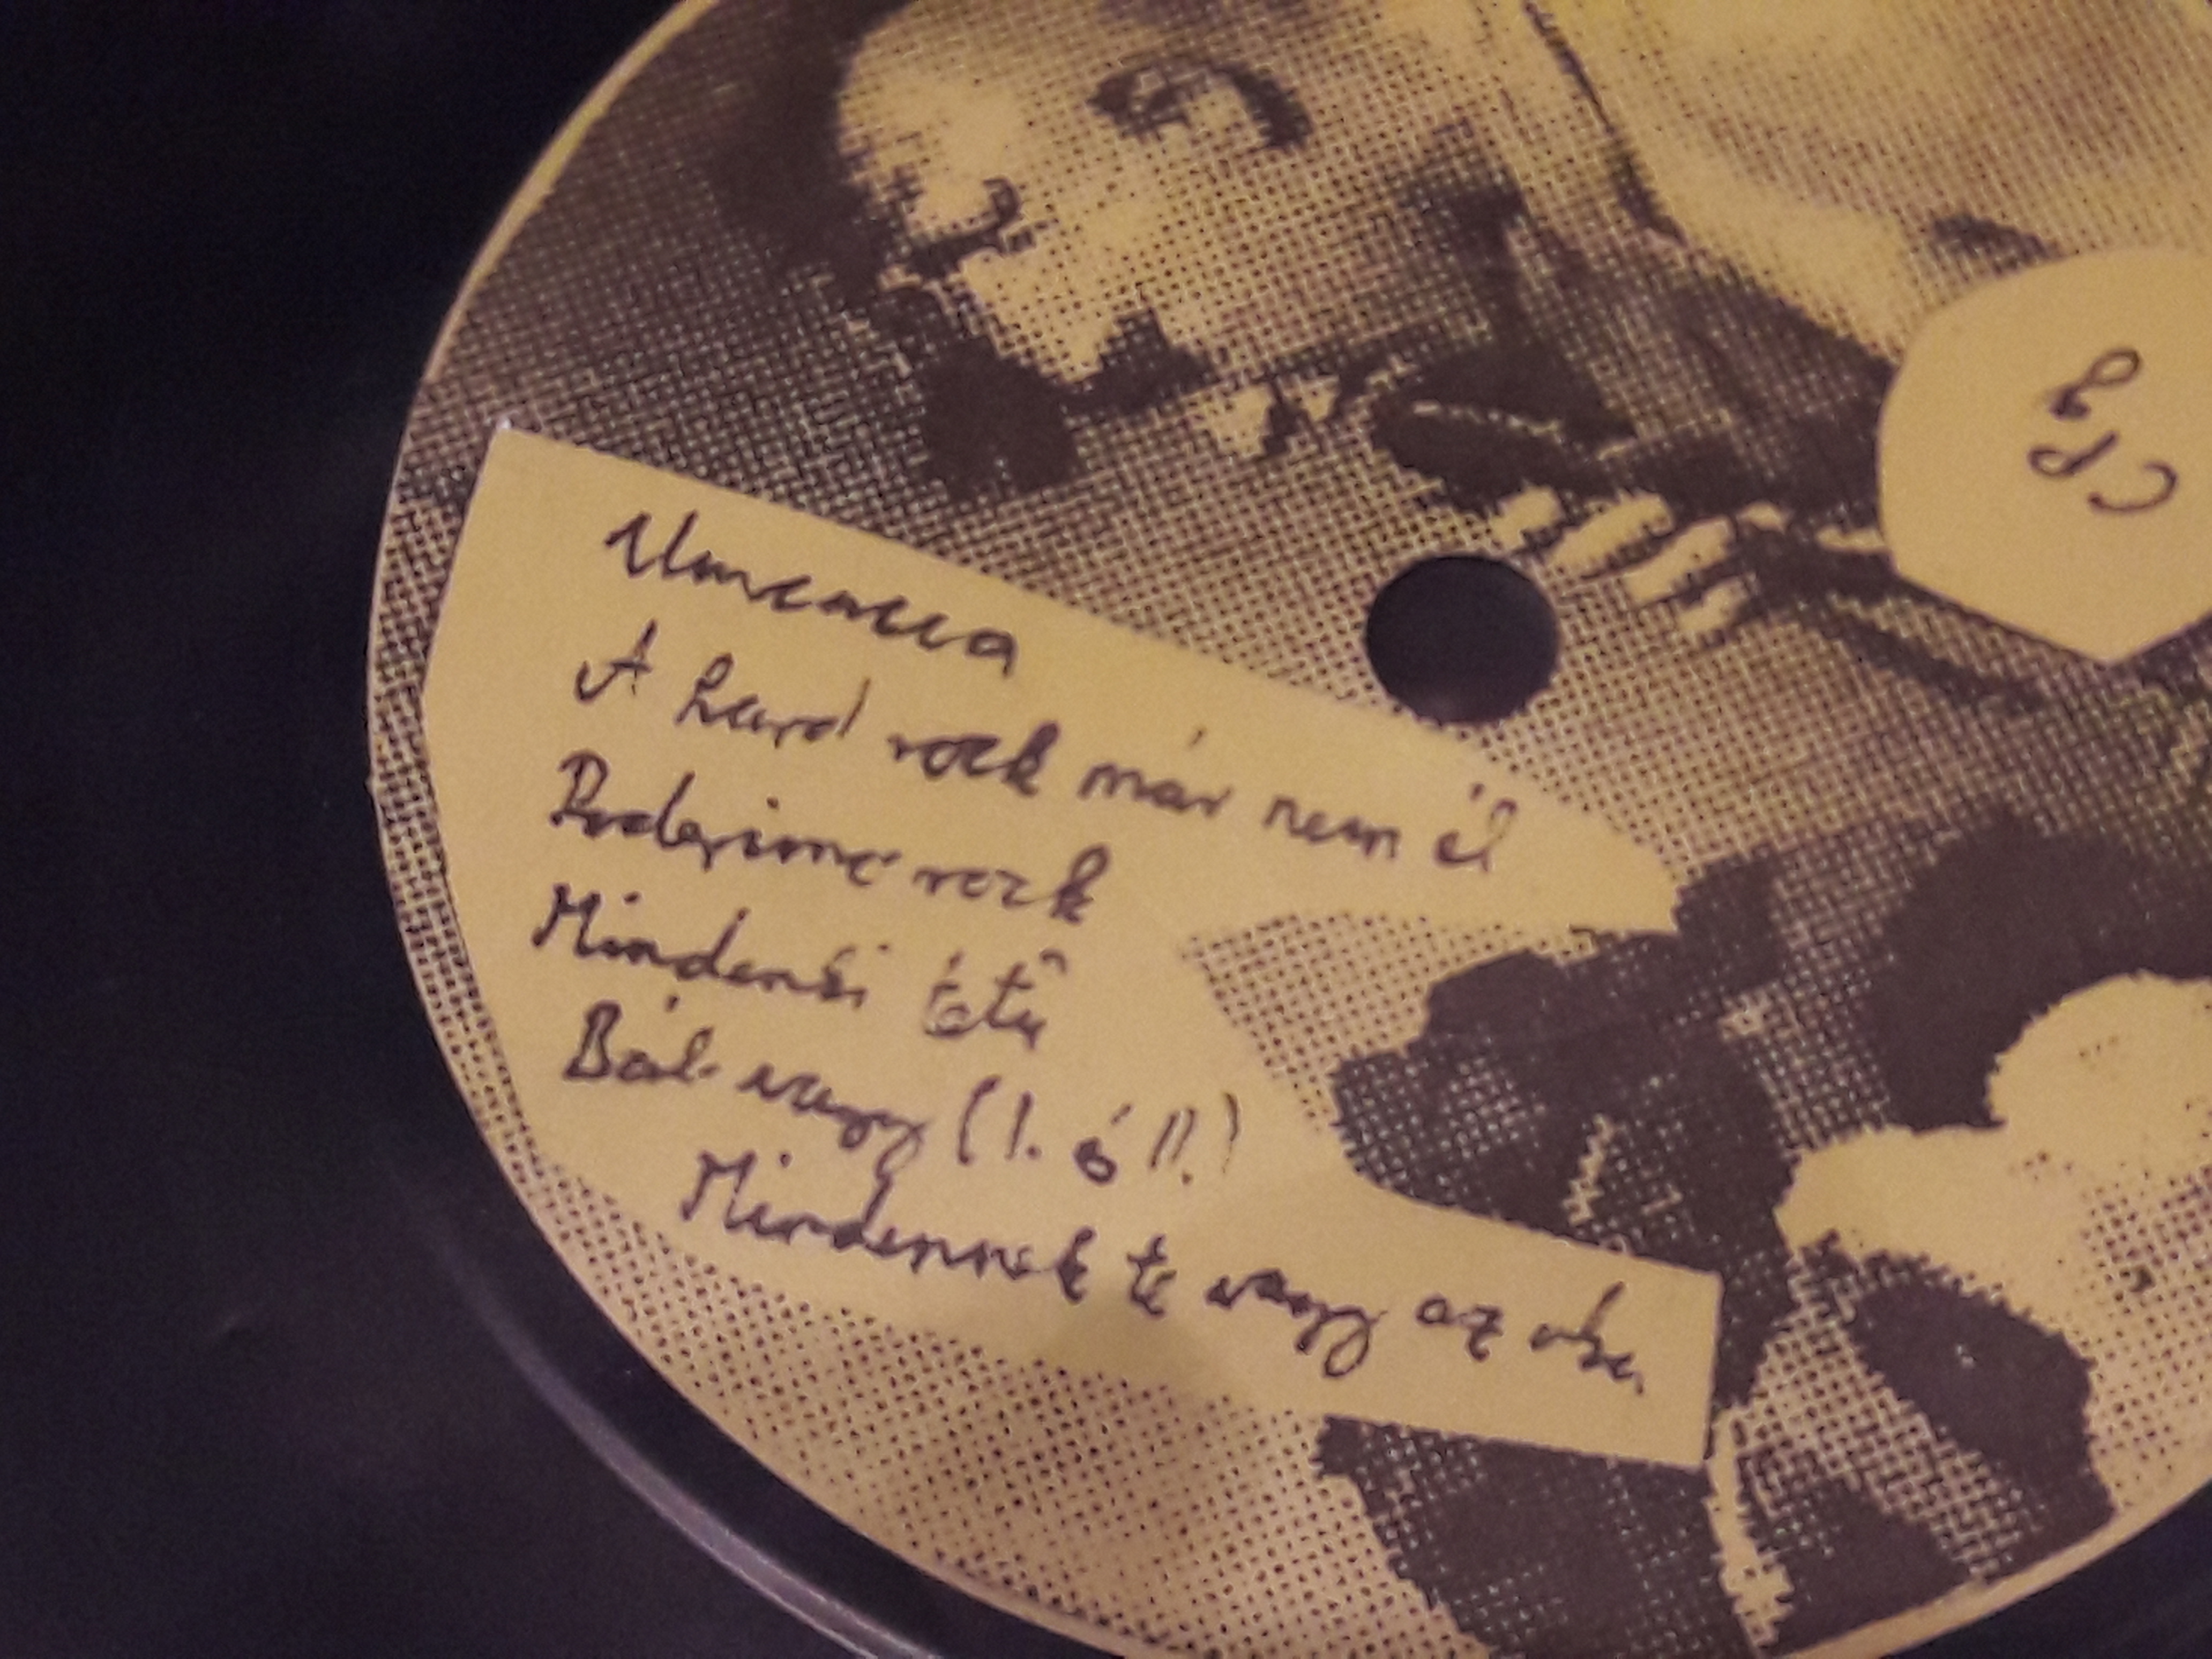 A hard rock már nem él
rock
Mindenki tetű
Báb vagy (I. és II.)
Mindennek te vagy az oka,
CPg